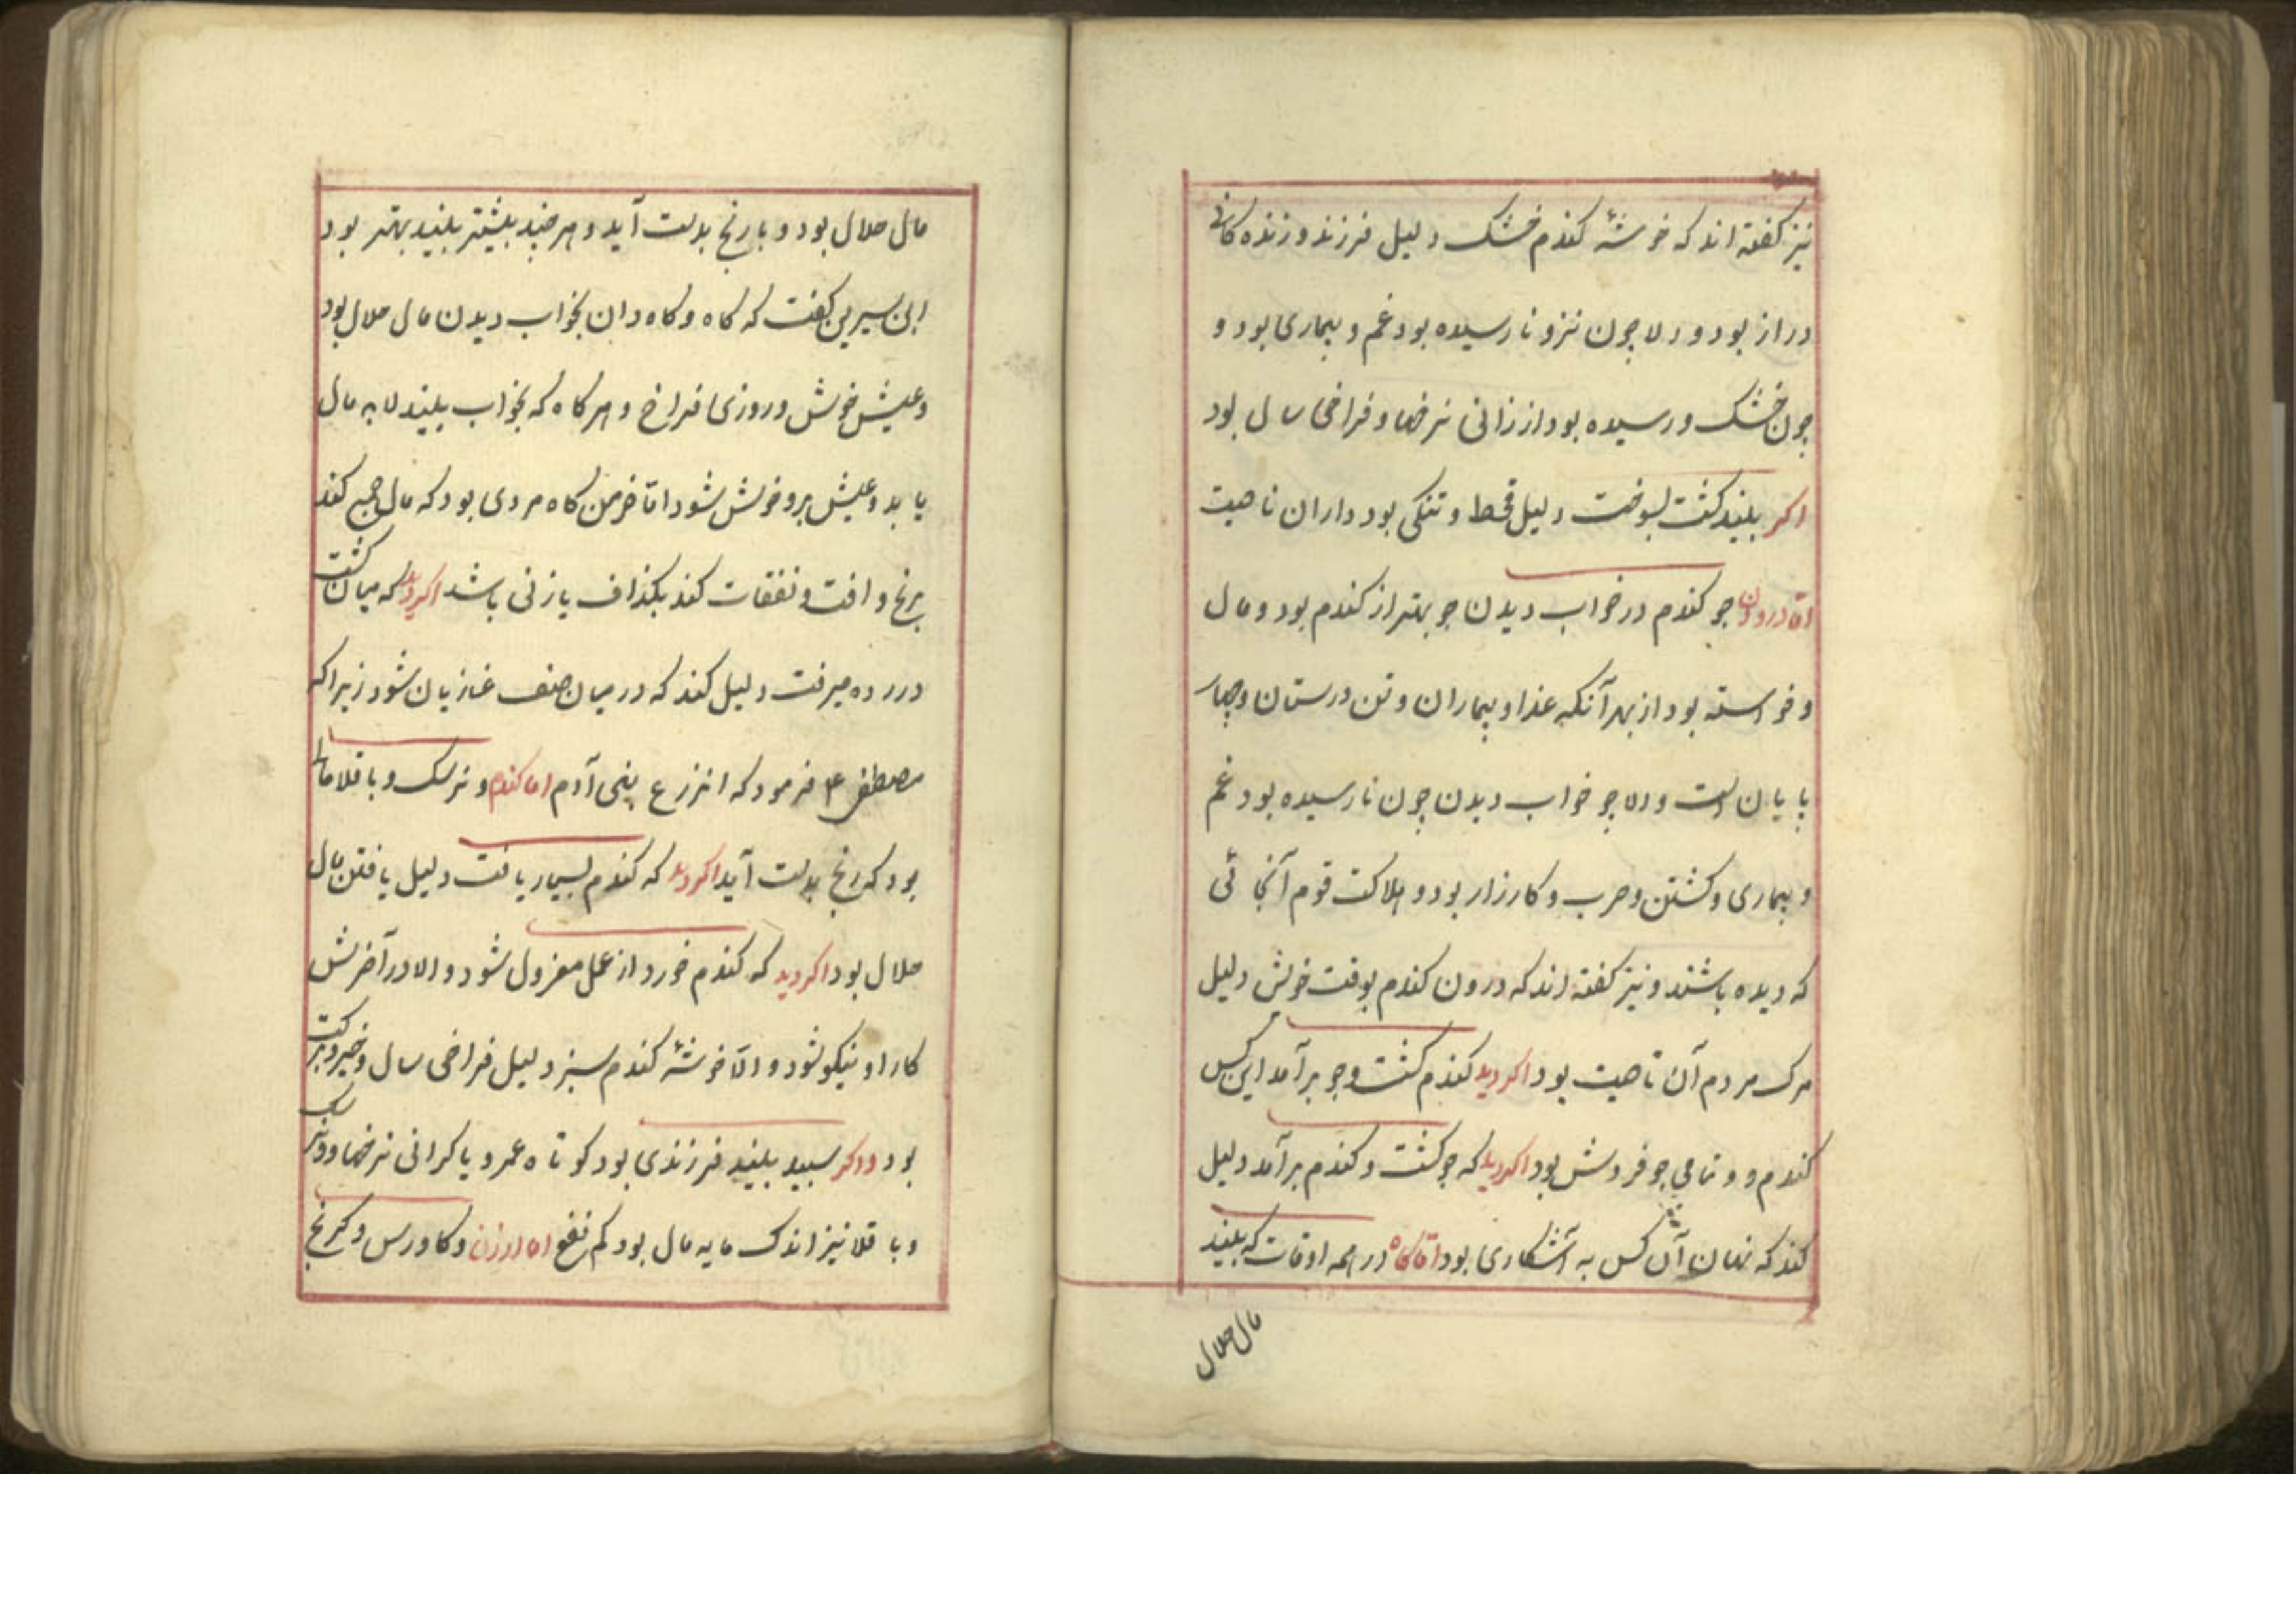 نیز کفته اند که خوشهٔ کندم خشک دلیل فرزند و زنده کانی
دراز بود و ولا چون نیز و نارسیده بود غم و بیماری بود و
چون خشک و رسیده بود ارزانی نرخها و فراخی سال بود
اکر بیند کشت بسوخت دلیل قحط و تنکی بود داران ناحیت
اما درودن جو کندم در خواب دیدن جو بهتر از کندم بود و مال
و خواسته بود از بهر آنکه غذاء بیماران و تن درستان و چهار
پایان است و ولا جو خواب دیدن چون نارسیده بود غم
و بیماری و کشتن و حرب و کارزار بود و هلاکت قوم آنجائی
که دیده باشند و نیز کفته اند که درون کندم بوقت خوش دلیل
مرک مردم آن ناحیت بود اکر دید کندم کشت و جو برآمد این کس
کندم و و نمامی جو فروش بود اکر دید که جو کشت و کندم برآمد دلیل
کند که نهان آن کس به آشکاری بود اما کاه در همه اوقات که بیند
مال حلال
مال حلال بود و با رنج بدست آید و هر چند بیشتر بیند بهتر بود
ابن سیرین کفت که کاه و کاه دان بخواب دیدن مال حلال بود
و عیش خوش و روزی فراخ و هر کاه که بخواب بیند لا به مال
یابد و عیش برو خوش شود اما خرمن کاه مردی بود که مال جمع کند
برنج و افت و نفقات کند بکذاف یا زنی باشد اکر دید که میان کشت
درو ده میرفت دلیل کند که در میان صف غازیان شود زیرا که
مصطفی ع فرمود که انزرع بنی آدم اما کندم و نرسک و باقلا مال
بود که رنج بدست آید اکر دید که کندم بسیار یافت دلیل یافتن مال
حلال بود اکر دید که کندم خورد از عمل معزول شود و الا در آخرش
کار او نیکو شود و الا خوشهٔ کندم سبز دلیل فراخی سال و خیر و برکت
بود و اکر سبید بیند فرزندی بود کوتاه عمر و یا کرانی نرخها و ونرسک
و باقلا نیز اندک مایه مال بود کم نفع اما ارزن و کاورس و کرنج